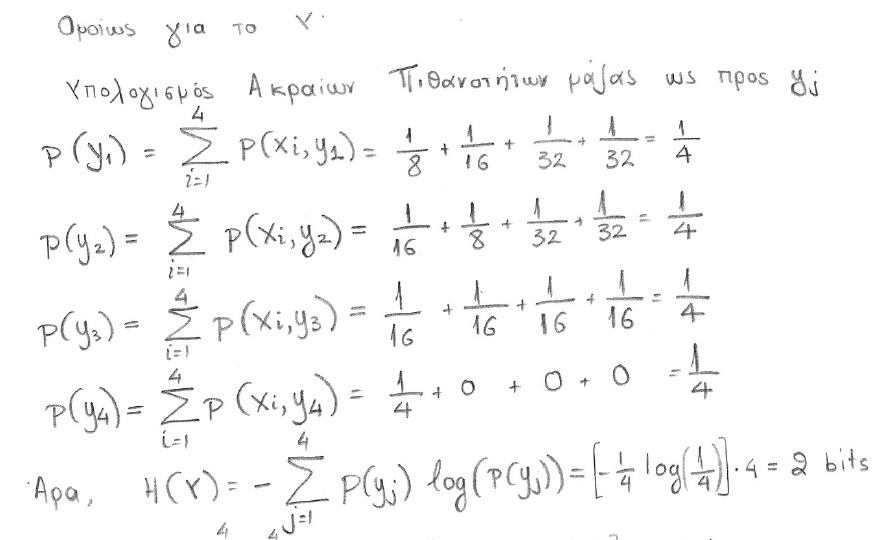 Ομοίως για το Υ.
Υπολογισμός Ακραίων Πιθανοτήτων μάζας ως προς yj
P(y₁) = ∑_{i=1}^{4} P(xi,y1) = 1/8 + 1/16 + 1/32 + 1/32 = 1/4
P(y₂) = ∑_{i=1}^{4} P(xi,y₂) = 1/16 + 1/8 + 1/32 + 1/32 = 1/4
P(y₃) = ∑_{i=1}^{4} P(xi,y₃) = 1/16 + 1/16 + 1/16 + 1/16 = 1/4
P(y₄) = ∑_{i=1}^{4} P(xi,y₄) = 1/4 + 0 + 0 + 0 = 1/4
Άρα, H(Y) = - ∑_{j=1}^{4} P(yj) log(P(yj)) = [-1/4 log(1/4)]·4 = 2 bits
4 4